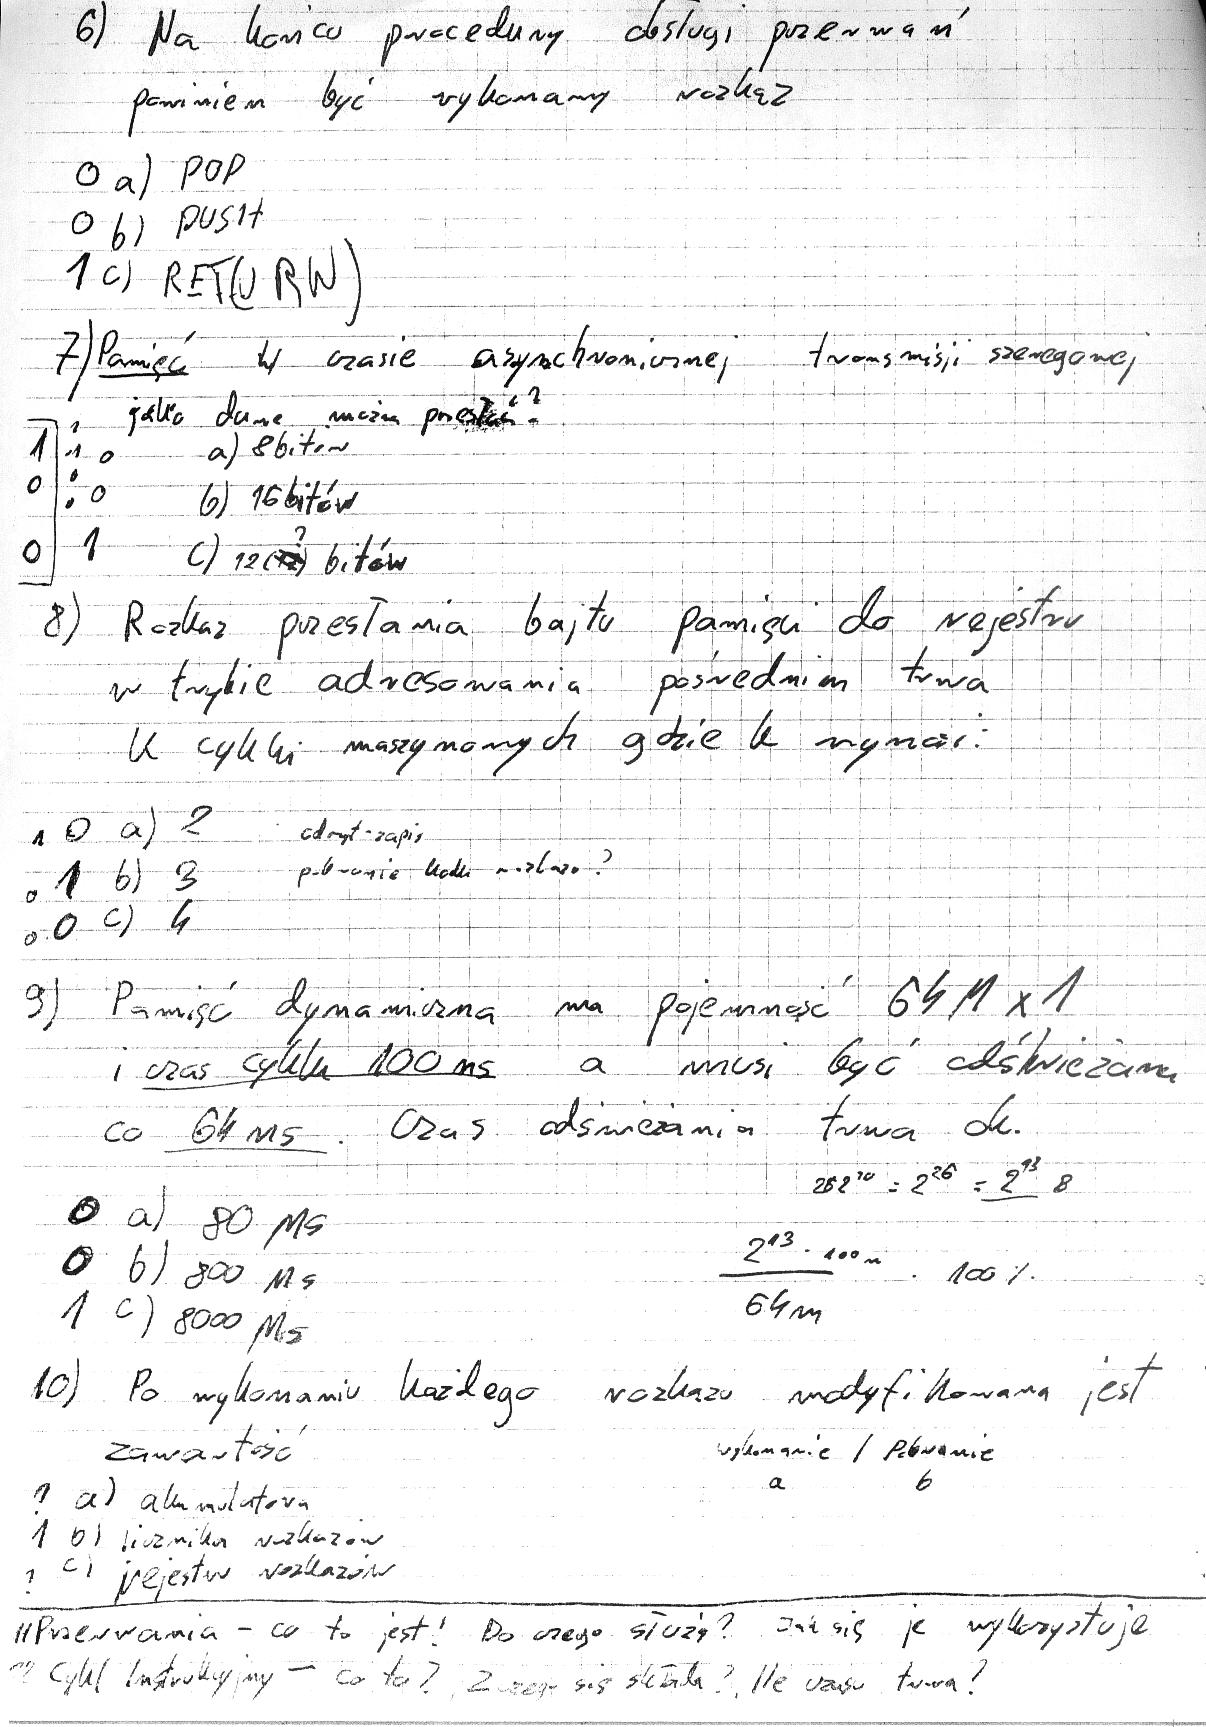 6) Na końcu procedury obsługi przerwań
powinien być wykonany rozkaz
0 a) POP
0 b) PUSH
1 c) RET(URN)
7) Pamięć W czasie asynchronicznej transmisji szeregowej
jako dane można przesłać?
1 1 0 a) 8 bitów
0 0 b) 16 bitów
0 1 c) 12 (?) bitów
8) Rozkaz przesłania bajtu pamięci do rejestru
w trybie adresowania pośrednim trwa
k cykli maszynowych gdzie k wynosi:
1 0 a) 2 odczyt-zapis
0 1 b) 3 pobranie kodu rozkazu?
0 0 c) 4
9) Pamięć dynamiczna ma pojemność 64 M x 1
i czas cyklu 100 ns a musi być odświeżana
co 64 ms. Czas odświeżania trwa ok.
= 2^26 = 2^13 8
0 a) 80 μs
0 b) 800 μs
1 c) 8000 μs
2^13 · 100n / 64m · 100 %
10) Po wykonaniu każdego rozkazu modyfikowana jest
zawartość
wykonanie / pobranie
a b
? a) akumulatora
1 b) licznika rozkazów
? c) rejestru rozkazów
11 Przerwania - co to jest! Do czego służą? Jak się je wykorzystuje
Cykl Instrukcyjny - co to? Z czego się składa? Ile czasu trwa?